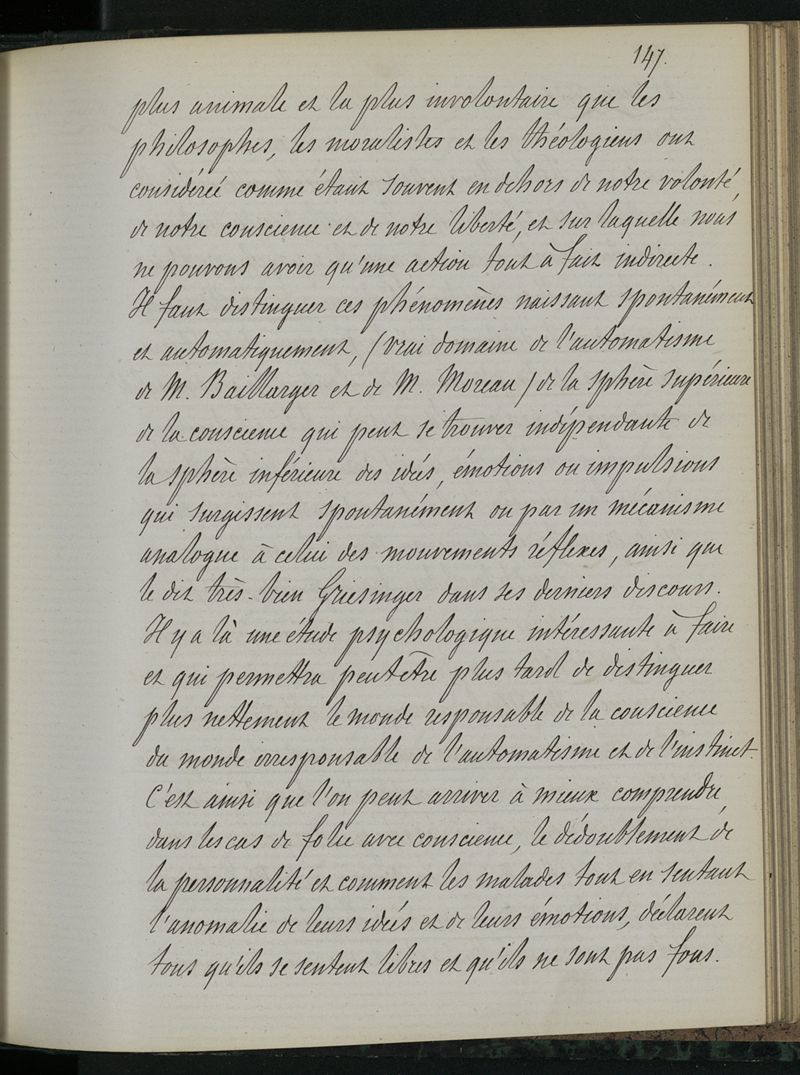 147.
plus animale et la plus involontaire que les
philosophes, les moralistes et les théologiens ont
considérée comme étant souvent en dehors de notre volonté,
de notre conscience et de notre liberté, et sur laquelle nous
ne pouvons avoir qu'une action tout à fait indirecte.
Il faut distinguer ces phénomènes naissant spontanément
et automatiquement, (vrai domaine de l'automatisme
de M. Baillarger et de M. Moreau) de la sphère supérieure
de la conscience qui peut se trouver indépendante de
la sphère inférieure des idées, émotions ou impulsions
qui surgissent spontanément ou par un mécanisme
analogue à celui des mouvements réflexes, ainsi que
le dit très-bien Griesinger dans ses derniers discours.
Il y a là une étude psychologique intéressante à faire
et qui permettra peut être plus tard de distinguer
plus nettement le monde responsable de la conscience
du monde irresponsable de l'automatisme et de l'instinct.
C'est ainsi que l'on peut arriver à mieux comprendre,
dans les cas de folie avec conscience, le dédoublement de
la personnalité et comment les malades tout en sentant
l'anomalie de leurs idées et de leurs émotions, déclarent
tous qu'ils se sentent libres et qu'ils ne sont pas fous.